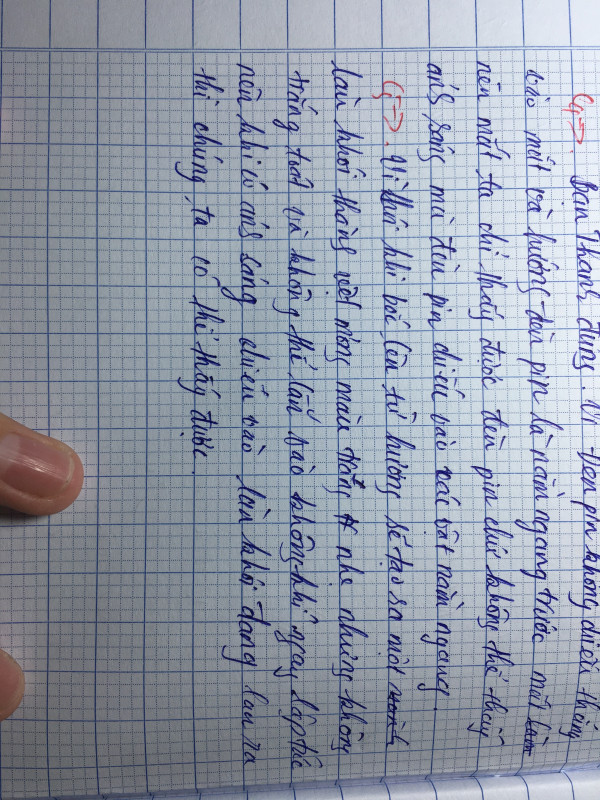 C4 → . Bạn Thanh đúng. Vì đèn pin không chiếu thẳng
vào mắt và hướng đèn pin là nằm ngang trước mắt
nên mắt ta chỉ thấy được đèn pin chứ không thể thấy
ánh sáng mà đèn pin chiếu vào các vật nằm ngang.
C5 → . Vì khi bốc lên từ hương sẽ tạo ra một
làn khói thẳng vệt mỏng màu trắng nhẹ nhưng không
trắng toát và không thể lẫn vào không khí ngay lập tức
nên khi có ánh sáng chiếu vào làn khói đang lan ra
thì chúng ta có thể thấy được.